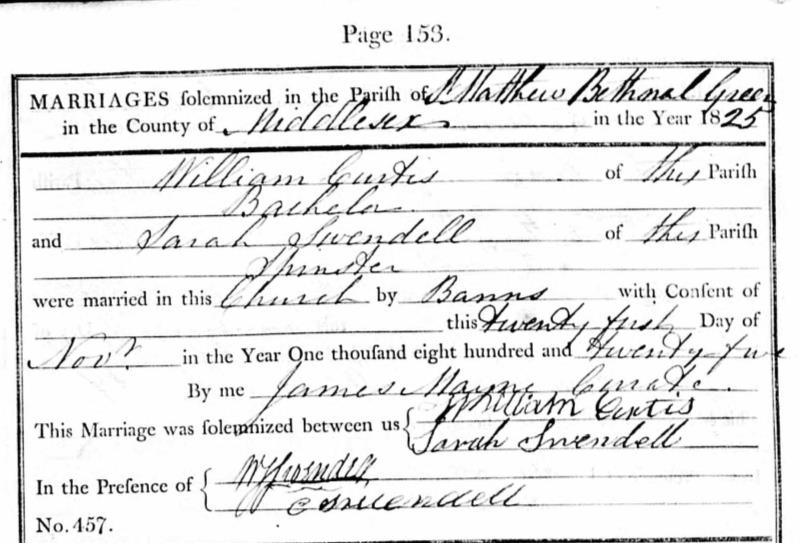 Page 153.
MARRIAGES solemnized in the Parish of St Matthew Bethnal Green
in the County of Middlesex in the Year 1825
William Curtis of this Parish
Bachelor
and Sarah Swendell of this Parish
Spinster
were married in this Church by Banns with Consent of
this twenty first Day of
Novr. in the Year One thousand eight hundred and twenty five
By me James Mayne Curate.
This Marriage was solemnized between us { William Curtis
Sarah Swendell
In the Presence of {
C Swendell
No. 457.